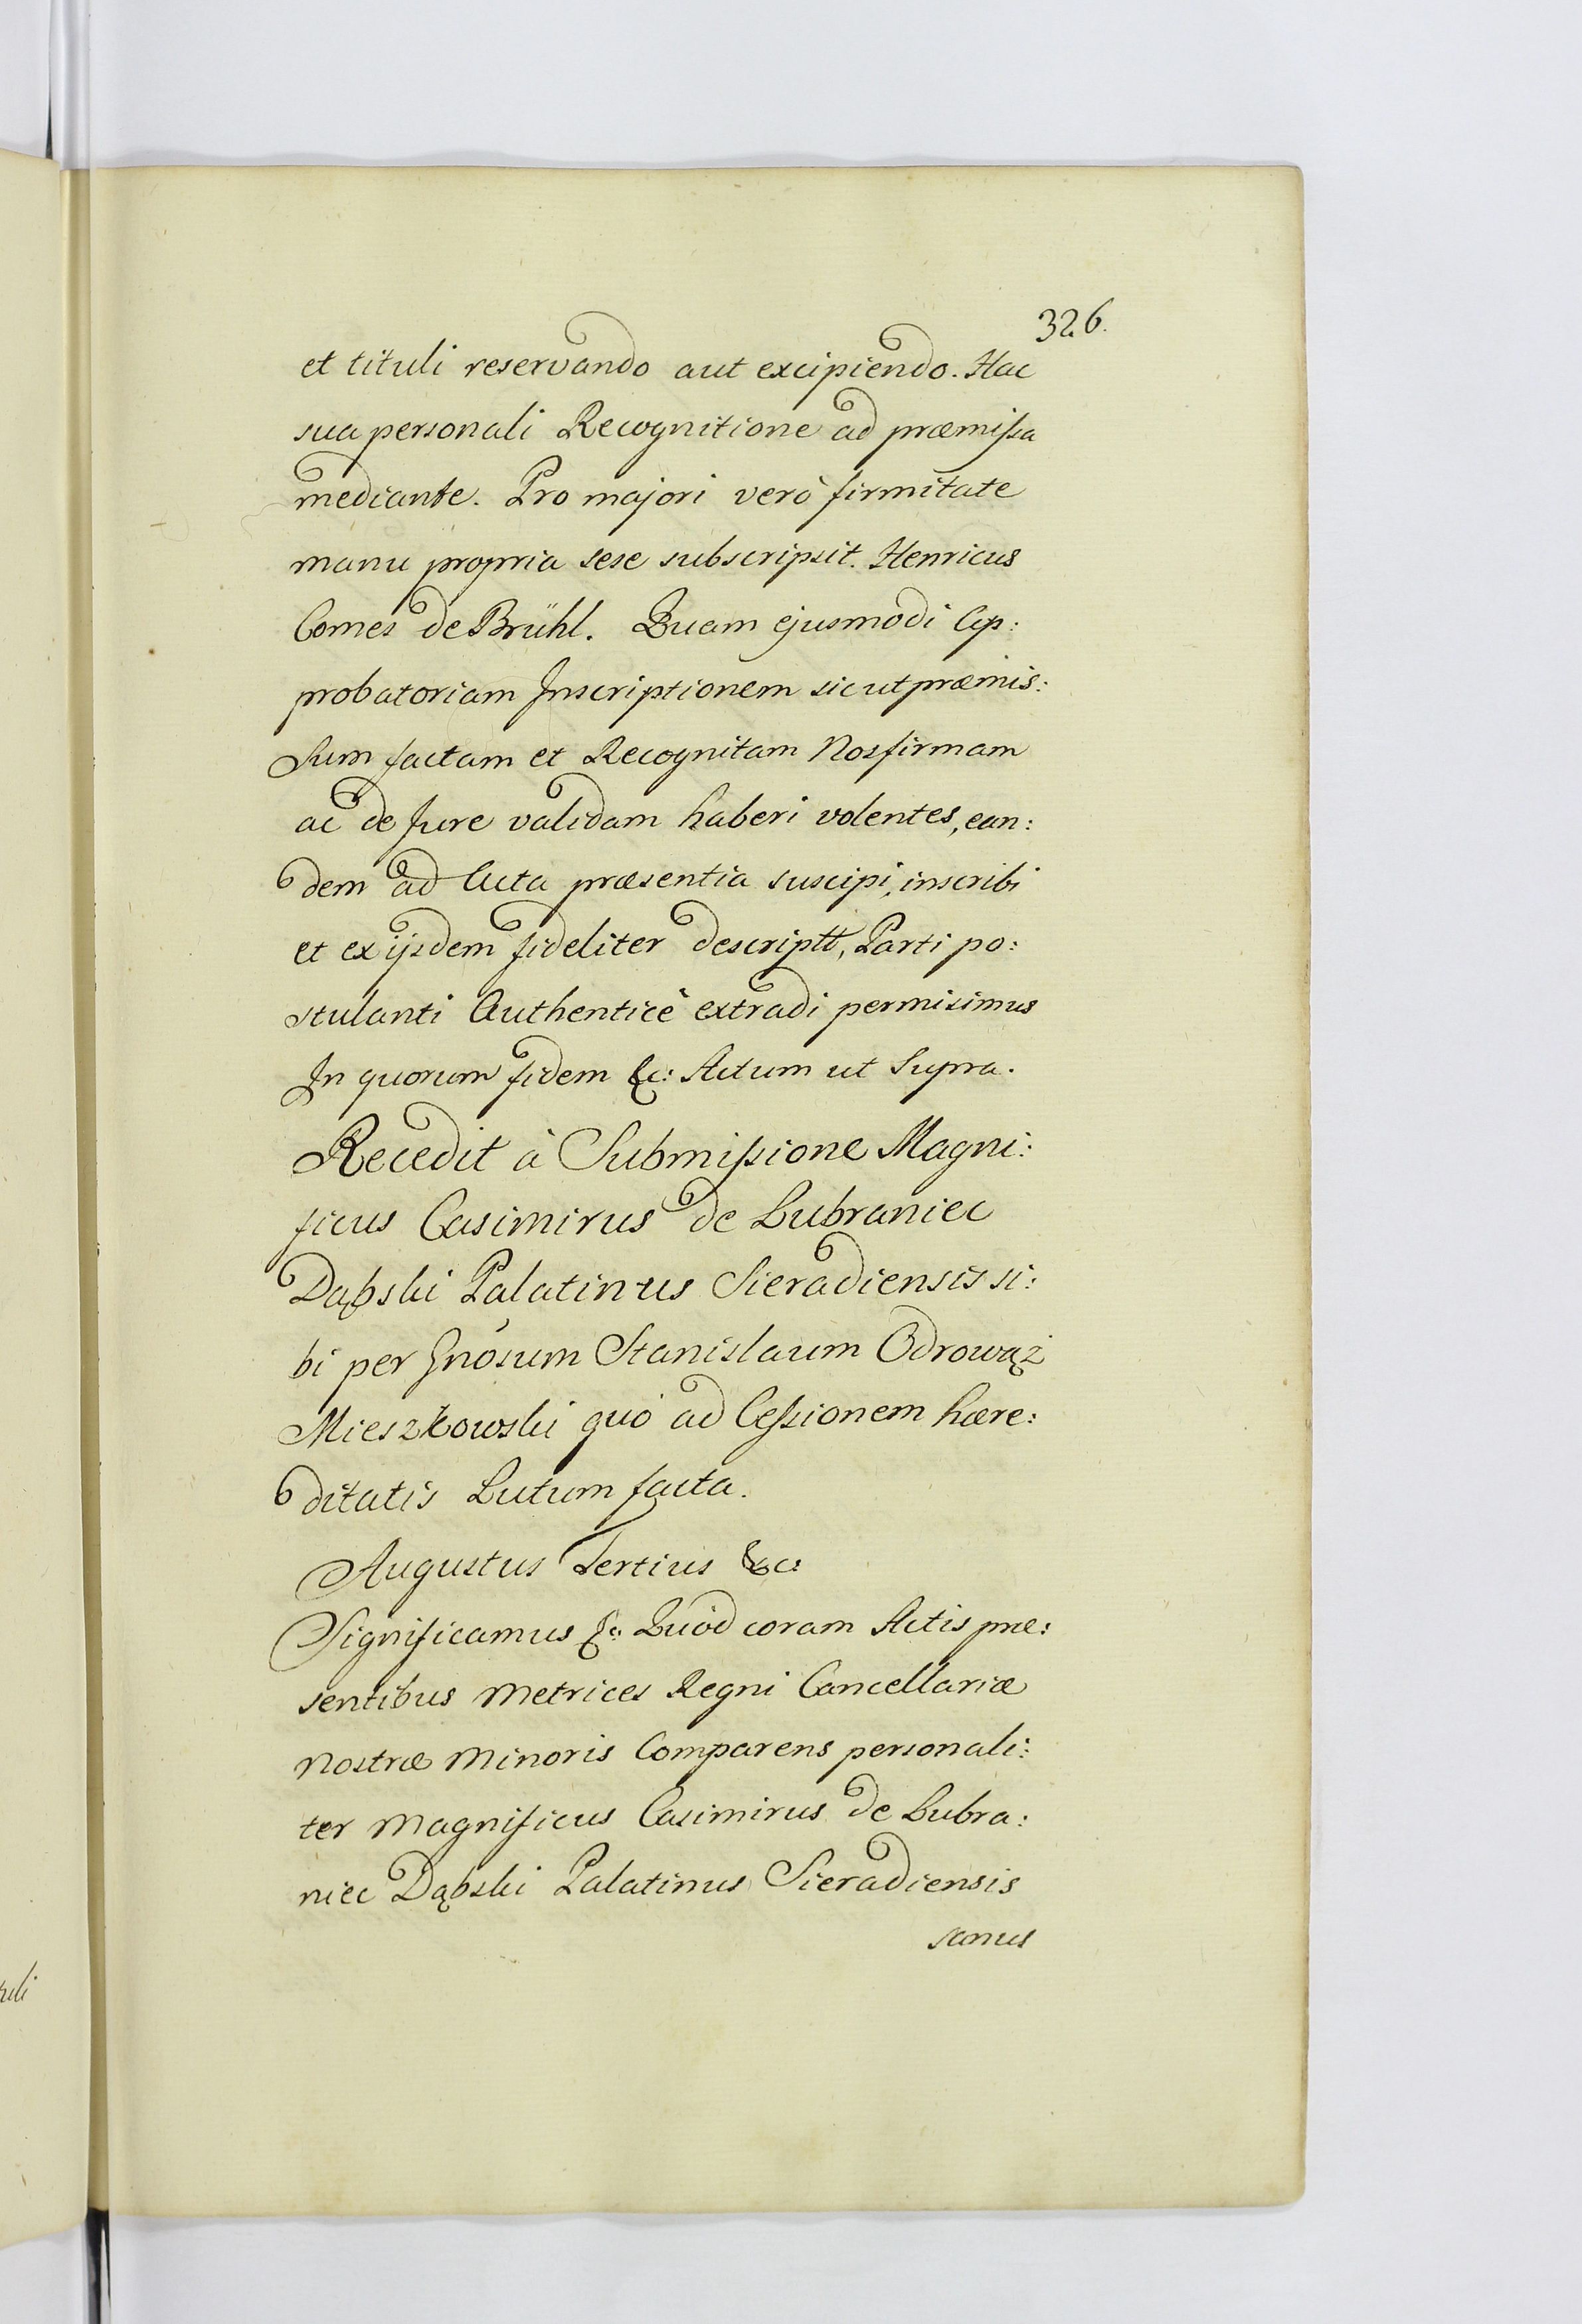 326.
et tituli reservando aut excipiendo. Hac
sua personali Recognitione ad præmissa
mediante. Pro majori verò firmitate
manu propria sese subscripsit. Henricus
Comes de Brühl. Quam ejusmodi Ap:
probatoriam Inscriptionem sic ut præmis:
sum factam et Recognitam Nos firmam
ac de Jure validam haberi volentes, ean:
dem ad Acta præsentia suscipi, inscribi
et ex ijsdem fideliter descriptt, Parti po:
stulanti Authenticè extradi permisimus
In quorum fidem &c: Actum ut Supra.
Recedit à Submissione Magni:
ficus Casimirus de Lubraniec
Dąbski Palatinus Sieradiensis si:
bi per Gnosum Stanislaum Odrowąż
Mieszkowski quò ad Cessionem hære:
ditatis Lutum facta.
Augustus Tertius &c:
Significamus &c: Quòd coram Actis præ:
sentibus Metrices Regni Cancellariæ
Nostræ Minoris Comparens personali:
ter Magnificus Casimirus de Lubra:
niec Dąbski Palatinus Sieradiensis
sanus